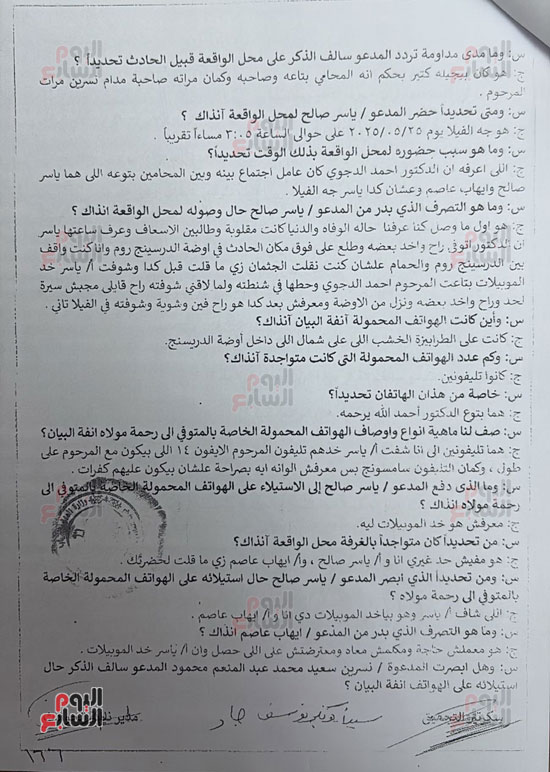 س: وما مدى مداومة تردد المدعو سالف الذكر على محل الواقعة قبيل الحادث تحديداً ؟
ج: هو كان بيجيله كتير بحكم انه المحامي بتاعه وصاحبه وكمان مراته صاحبة مدام نسرين مرات
المرحوم .
س: ومتى تحديداً حضر المدعو / ياسر صالح لمحل الواقعة آنذاك ؟
ج: هو جه الفيلا يوم ٢٠٢٥/٠٥/٢٥ على حوالى الساعة ٣:٠٥ مساءاً تقريباً .
س: وما هو سبب حضوره لمحل الواقعة بذلك الوقت تحديداً؟
ج: اللى اعرفه ان الدكتور احمد الدجوي كان عامل اجتماع بينه وبين المحامين بتوعه اللى هما ياسر
صالح وايهاب عاصم وعشان كدا ياسر جه الفيلا .
س: وما هو التصرف الذي بدر من المدعو / ياسر صالح حال وصوله لمحل الواقعة انذاك ؟
ج: هو اول ما وصل كنا عرفنا حاله الوفاه والدنيا كانت مقلوبة وطالبين الاسعاف وعرف ساعتها ياسر
ان الدكتور اتوفى راح واخد بعضه وطلع على فوق مكان الحادث في اوضة الدرسينج روم وانا كنت واقف
بين الدرسينج روم والحمام علشان كنت نقلت الجثمان زي ما قلت قبل كدا وشوفت أ/ ياسر خد
الموبيلات بتاعت المرحوم احمد الدجوي وحطها في شنطته ولما لاقني شوفته راح قايلى مجبش سيرة
لحد وراح واخد بعضه ونزل من الاوضة ومعرفش بعد كدا هو راح فين وشوية وشوفته في الفيلا تاني .
س: وأين كانت الهواتف المحمولة آنفة البيان آنذاك؟
ج: كانت على الطرابيزة الخشب اللى على شمال اللى داخل أوضة الدريسنج.
س: وكم عدد الهواتف المحمولة التى كانت متواجدة آنذاك؟
ج: كانوا تليفونين.
س: خاصة من هذان الهاتفان تحديداً؟
ج: هما بتوع الدكتور أحمد الله يرحمه.
س: صف لنا ماهية انواع واوصاف الهواتف المحمولة الخاصة بالمتوفي الى رحمة مولاه انفة البيان؟
ج: هما تليفونين الى انا شفت أ/ ياسر خدهم تليفون المرحوم الايفون ١٤ اللى بيكون مع المرحوم على
طول ، وكمان التليفون سامسونج بس معرفش الوانه ايه بصراحة علشان بيكون عليهم كفرات .
س: وما الذى دفع المدعو / ياسر صالح إلى الاستيلاء على الهواتف المحمولة الخاصة بالمتوفي الى
رحمة مولاه انذاك ؟
ج: معرفش هو خد الموبيلات ليه.
س: من تحديداً كان متواجداً بالغرفة محل الواقعة آنذاك؟
ج: هو مفيش حد غيري انا و أ/ ياسر صالح ، وأ/ ايهاب عاصم زي ما قلت لحضرتك .
س: ومن تحديداً الذي ابصر المدعو / ياسر صالح حال استيلائه على الهواتف المحمولة الخاصة
بالمتوفي الى رحمة مولاه ؟
ج: اللى شاف أ/ ياسر وهو بياخد الموبيلات دي انا و أ/ ايهاب عاصم .
س: وما هو التصرف الذي بدر من المدعو / ايهاب عاصم انذاك ؟
ج: هو معملش حاجة ومكلمش معاه ومعترضش على اللى حصل وان أ/ ياسر خد الموبيلات .
س: وهل ابصرت المدعوة / نسرين سعيد محمد عبد المنعم محمود المدعو سالف الذكر حال
استيلائه على الهواتف انفة البيان ؟
سكرتير التحقيق
١٦٦
اليوم السابع